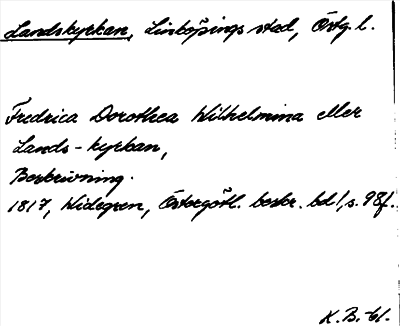 Landskyrkan, Linköpings stad, Östg. l.
Fredrica Dorothea Wilhelmina eller
Lands-kyrkan,
Beskrivning.
1817, Widegren, Östergötl. beskr. bd 1, s. 98f.
K.B.-61.